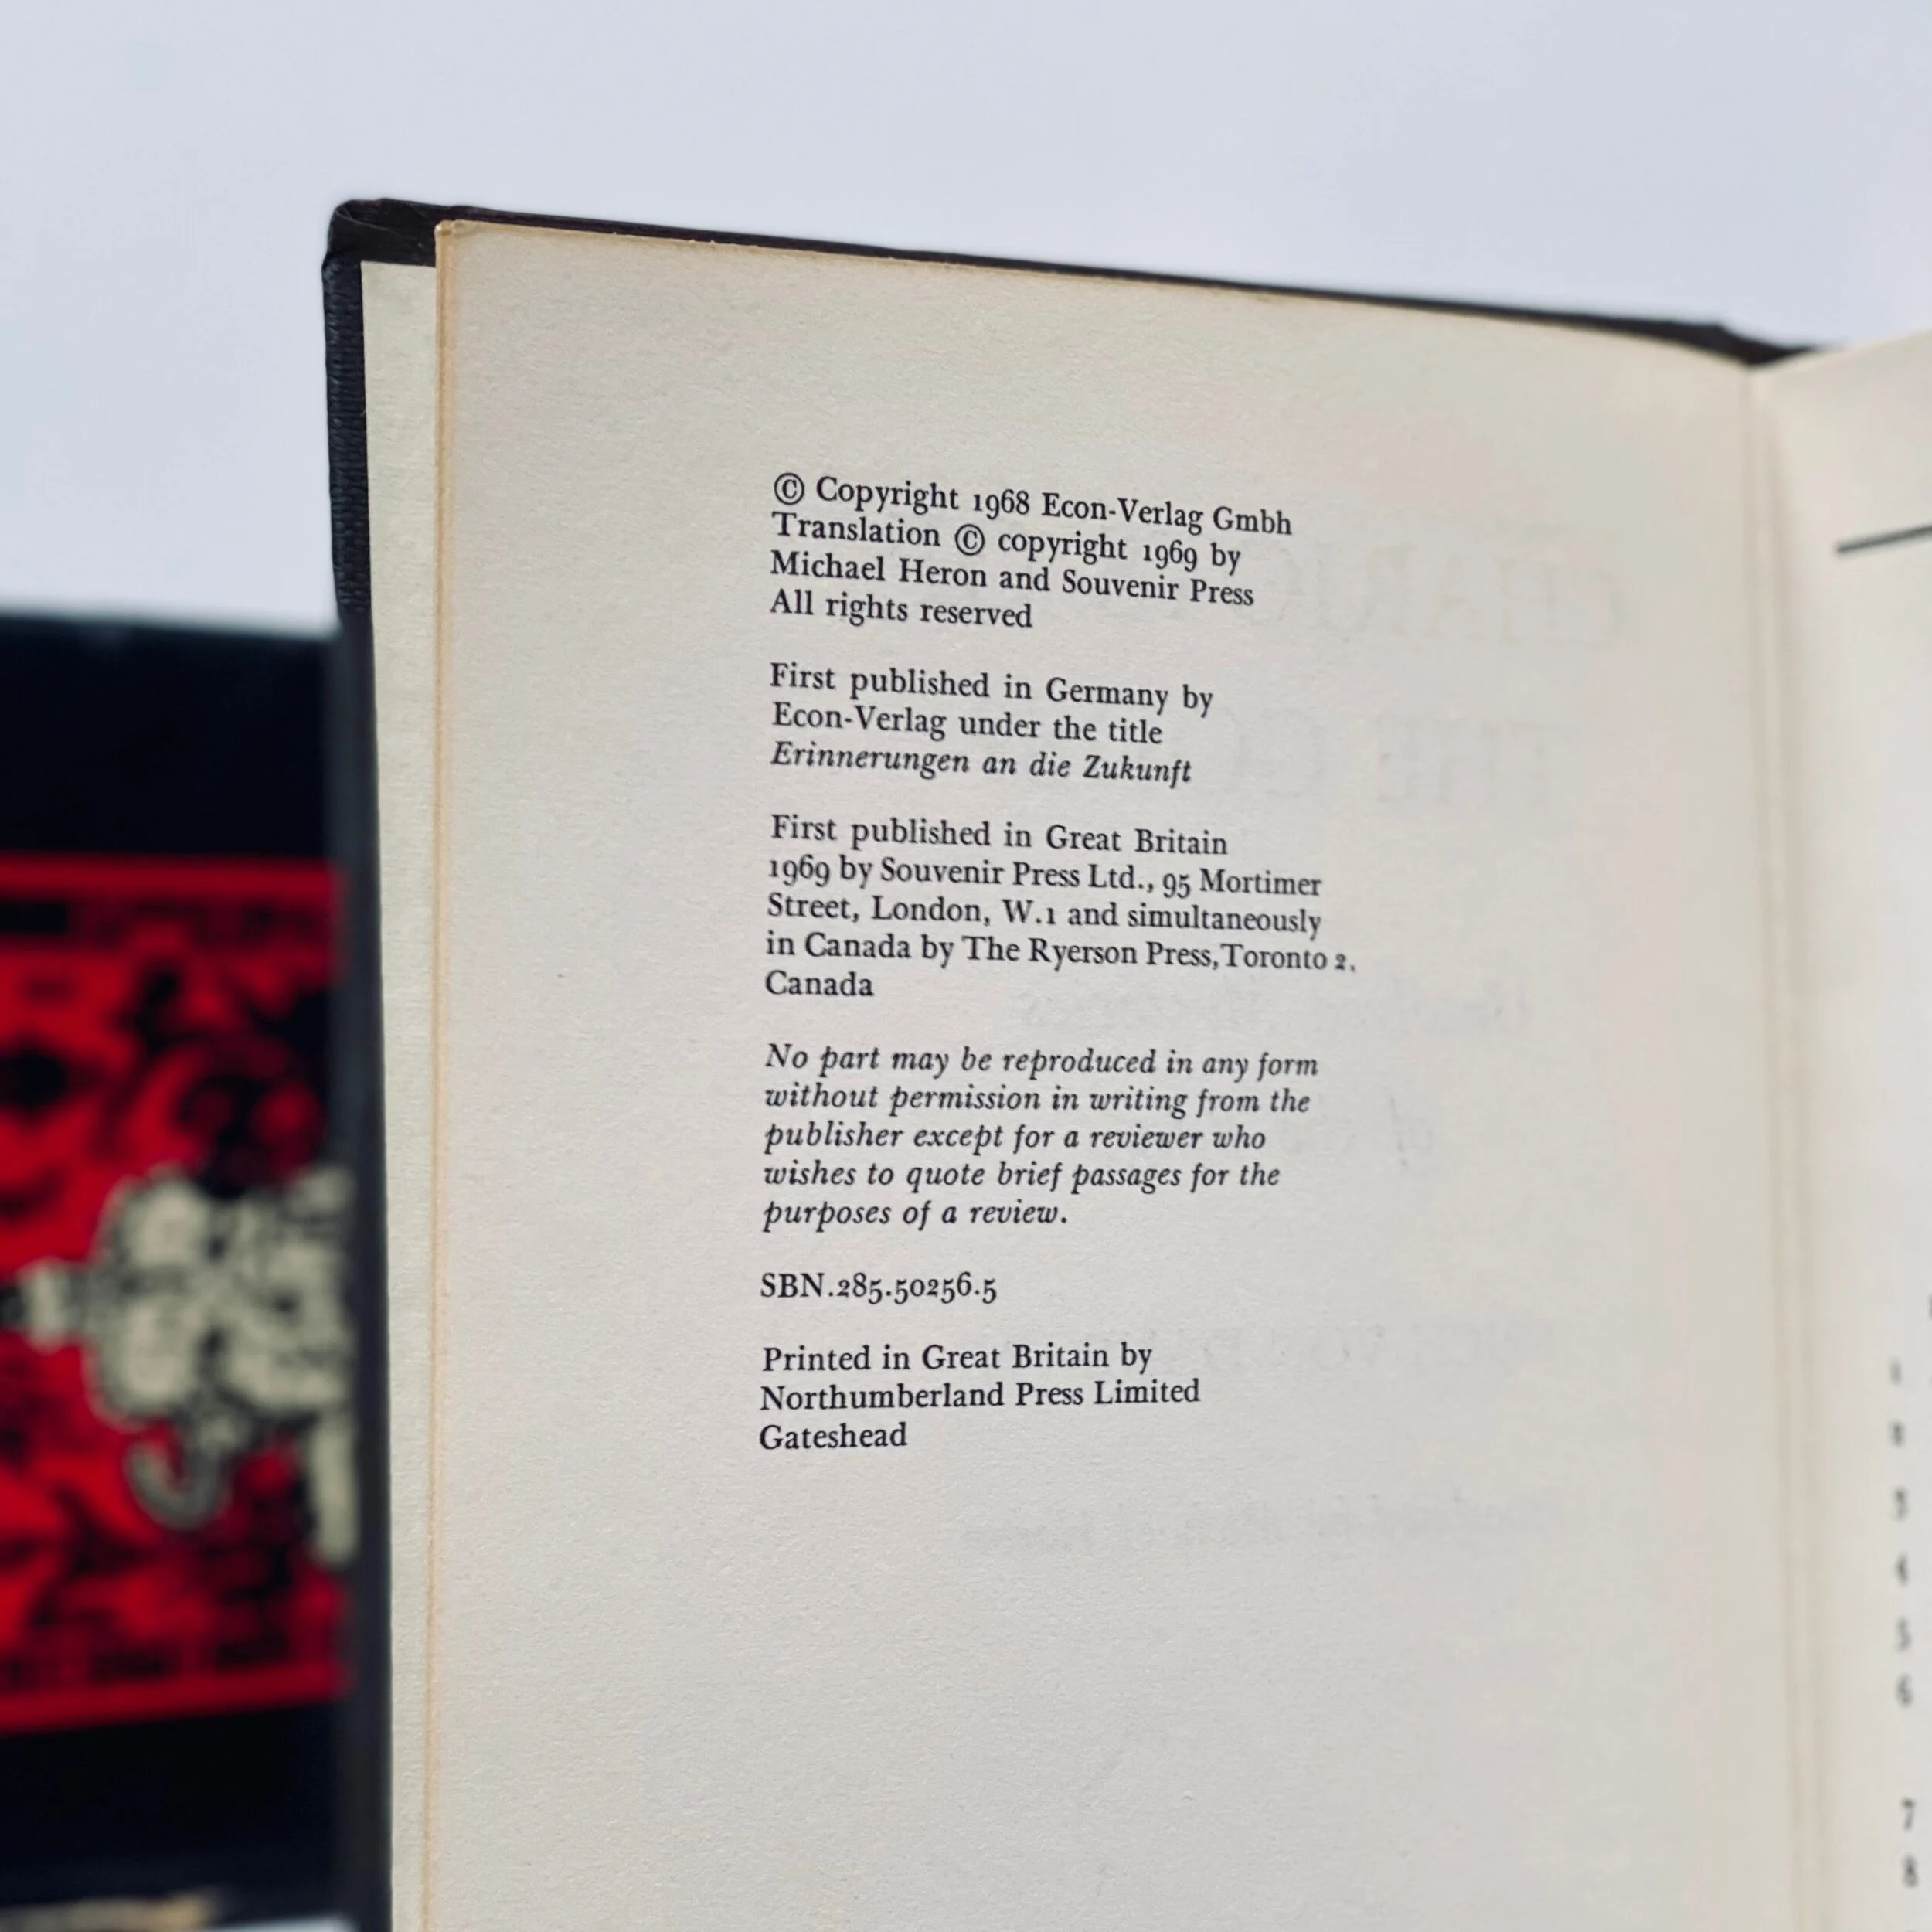 © Copyright 1968 Econ-Verlag Gmbh
Translation © copyright 1969 by
Michael Heron and Souvenir Press
All rights reserved
First published in Germany by
Econ-Verlag under the title
Erinnerungen an die Zukunft
First published in Great Britain
1969 by Souvenir Press Ltd., 95 Mortimer
Street, London, W.1 and simultaneously
in Canada by The Ryerson Press, Toronto 2,
Canada
No part may be reproduced in any form
without permission in writing from the
publisher except for a reviewer who
wishes to quote brief passages for the
purposes of a review.
SBN.285.50256.5
Printed in Great Britain by
Northumberland Press Limited
Gateshead
3
4
5
6
7
8